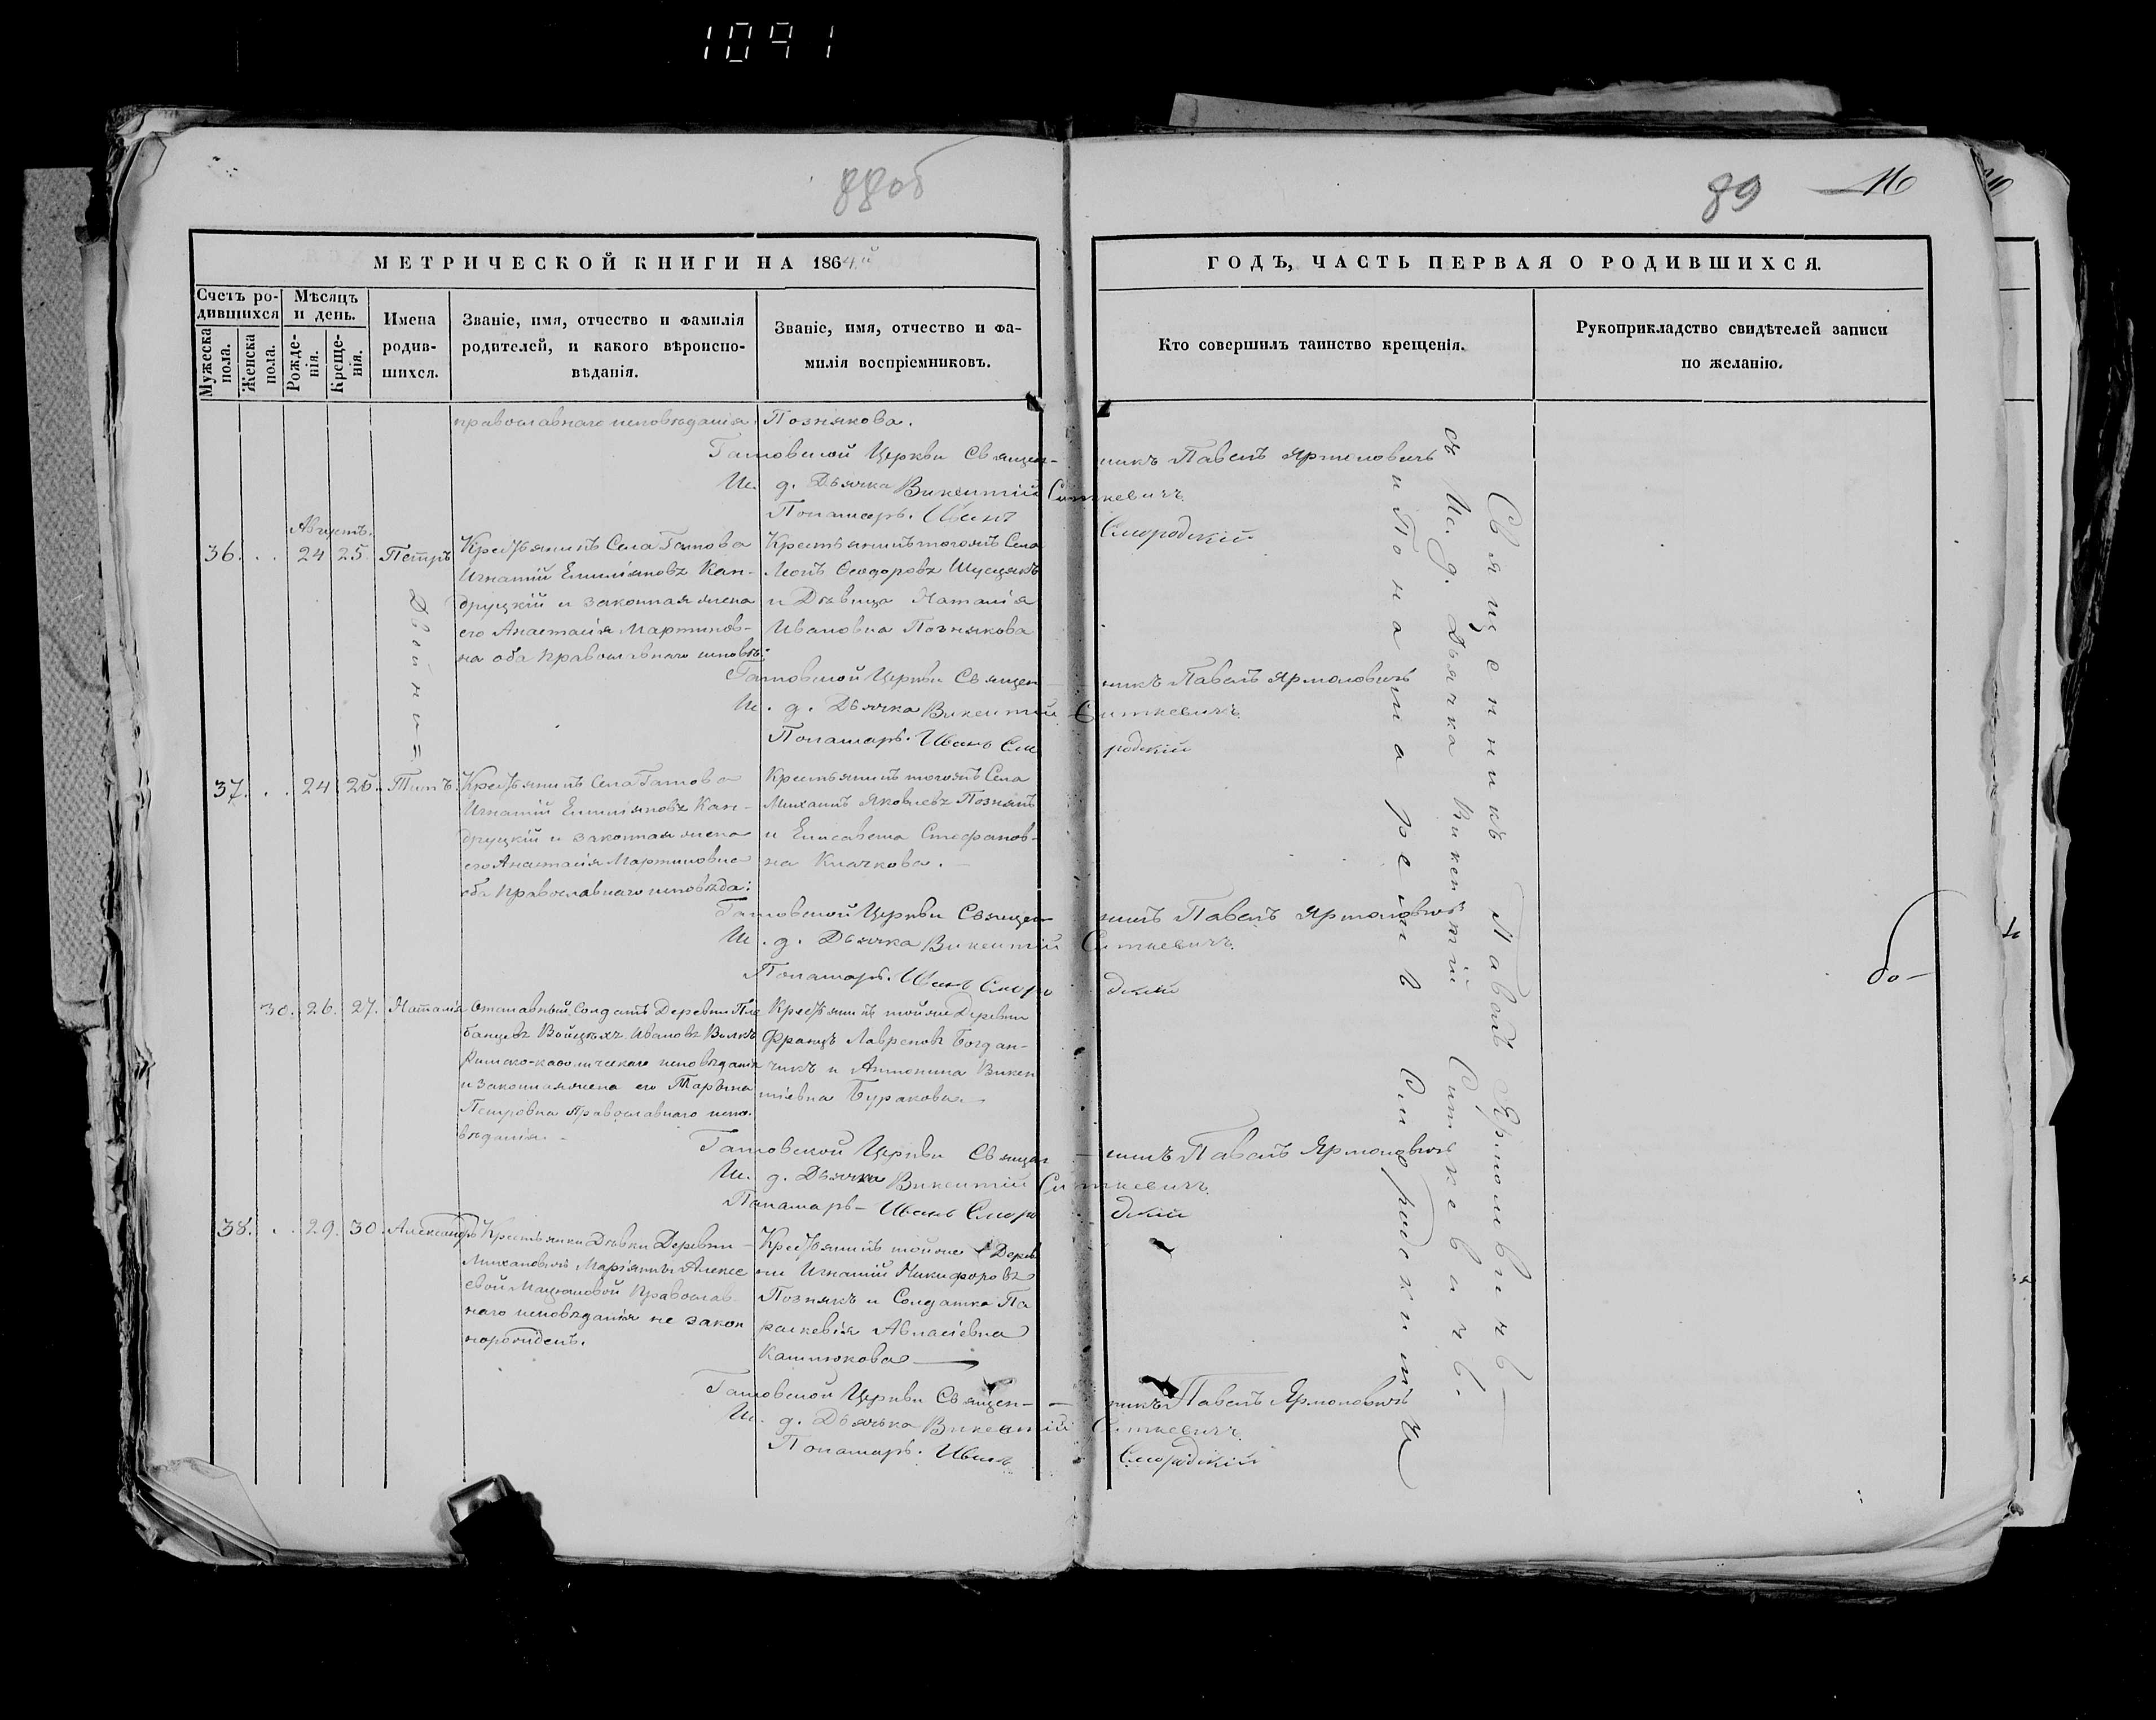 1091
88об
89
16
МЕТРИЧЕСКОЙ КНИГИ НА 1864й
ГОДЪ, ЧАСТЬ ПЕРВАЯ О РОДИВШИХСЯ.
Счетъ родившихся
Мужеска пола.
Женска пола.
Мѣсяцъ и день.
Рожденія.
Крещенія.
Имена родившихся.
Званіе, имя, отчество и фамилія родителей, и какого вѣроисповѣданія.
Званіе, имя, отчество и фамилія воспріемниковъ.
Кто совершилъ таинство крещенія.
Рукоприкладство свидѣтелей записи по желанію.
православнаго исповѣданія.
Познякова.
Гатовской Церкви Священникъ Павелъ Ярмоловичъ
И. д. Дьячка Викентій Ситкевичъ.
Понамарь. Иванъ Смородскій
Августъ.
36. . . 24 25. Петръ
Двойнята
Крестьянинъ Села Гатова
Игнатій Емиліяновъ Кан-
друцкій и законная жена
его Анастасія Мартинов-
на оба Православнаго исповѣ:
Крестьянинъ тогожъ Села
Ѳеодоровъ
и Дѣвица Наталія
Ивановна Познякова
Гатовской Церкви Священникъ Павелъ Ярмоловичъ
И. д. Дьячка Викентій Ситкевичъ.
Понамарь. Иванъ Смородскій
37. . . 24 25. Титъ.
Крестьянинъ Села Гатова
Игнатій Емиліяновъ Кан-
друцкій и законная жена
его Анастасія Мартиновна
оба Православнаго исповѣда:
Крестьянинъ тогожъ Села
Михаилъ Яковлевъ Познякъ
и Елисавета Стефанов-
на Клачкова.
Гатовской Церкви Священникъ Павелъ Ярмоловичъ
И. д. Дьячка Викентій Ситкевичъ.
Понамарь. Иванъ Смородскій
30. 26. 27. Наталія
Отставный Солдатъ Деревни Пле
банцевъ Войцѣхъ Ивановъ
Римско-католическаго исповѣданія
и законная жена его Марьяна
Петровна Православнаго испо-
вѣданія. -
Крестьянинъ тойже Деревни
Францъ Лавреновъ Богдан-
чикъ и Антонина Викен
тіевна Буракова. -
Гатовской Церкви Священникъ Павелъ Ярмоловичъ
И. д. Дьячка Викентій Ситкевичъ.
Понамарь - Иванъ Смородскій
38. . . 29. 30. Александръ
Крестьянки Дѣвки Деревни
Михановичъ Маріянны Алексе
евой Православ-
наго исповѣданія не закон
норожденъ.
Крестьянинъ тойже Дерев
ни Игнатій Никифоровъ
Познякъ и Солдатка Па
раскевія
Гатовской Церкви Священникъ Павелъ Ярмоловичъ
И. д. Дьячка Викентій Ситкевичъ.
Понамарь. Иванъ Смородскій
Священникъ Павелъ Ярмоловичъ
съ И. д. Дьячка Викентій Ситкевичъ.
и Понамаремъ Смородскимъ
бо-